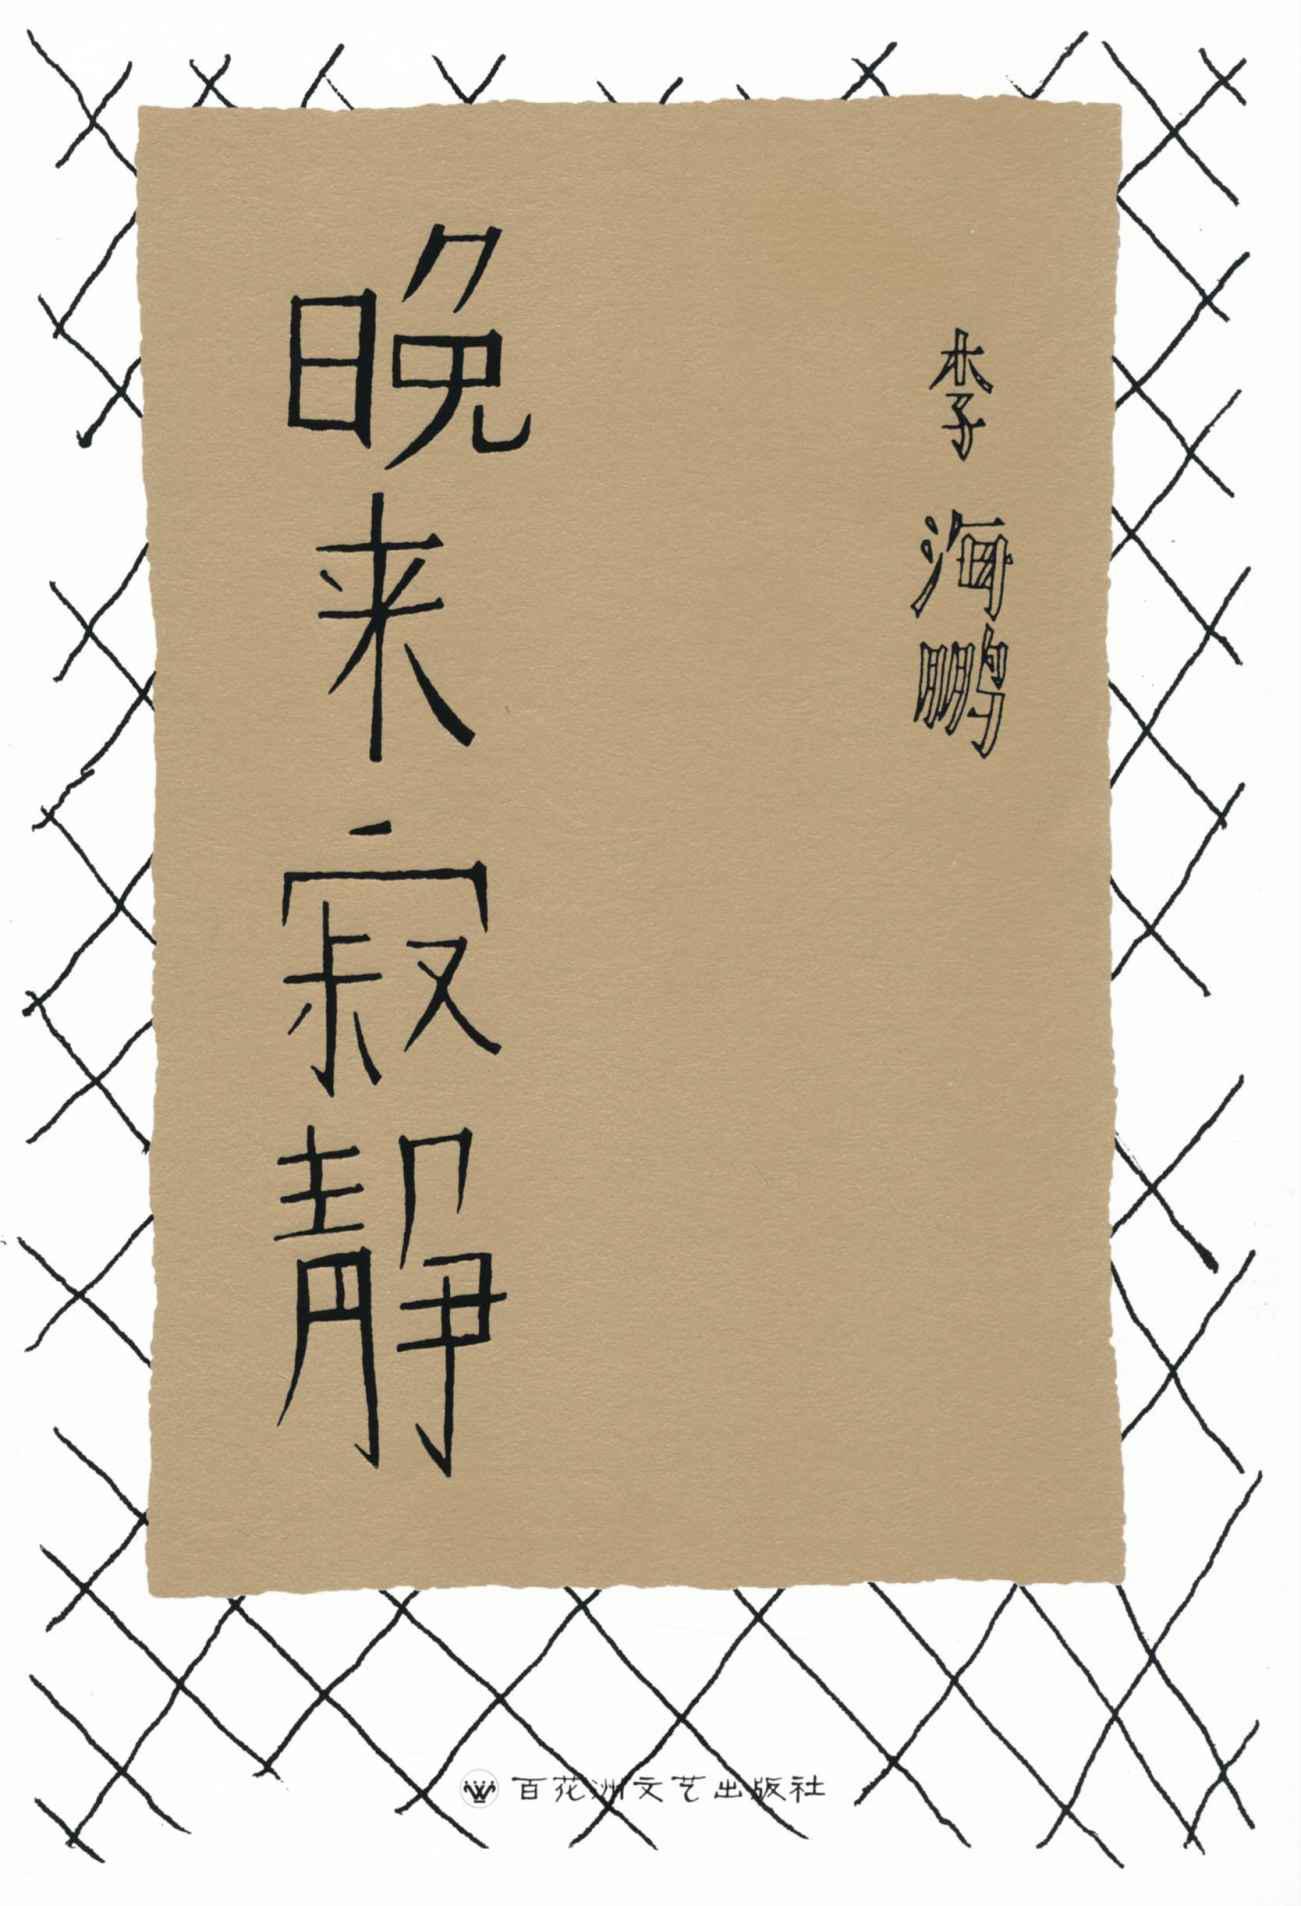 李海鹏
晚来寂静
百花洲文艺出版社